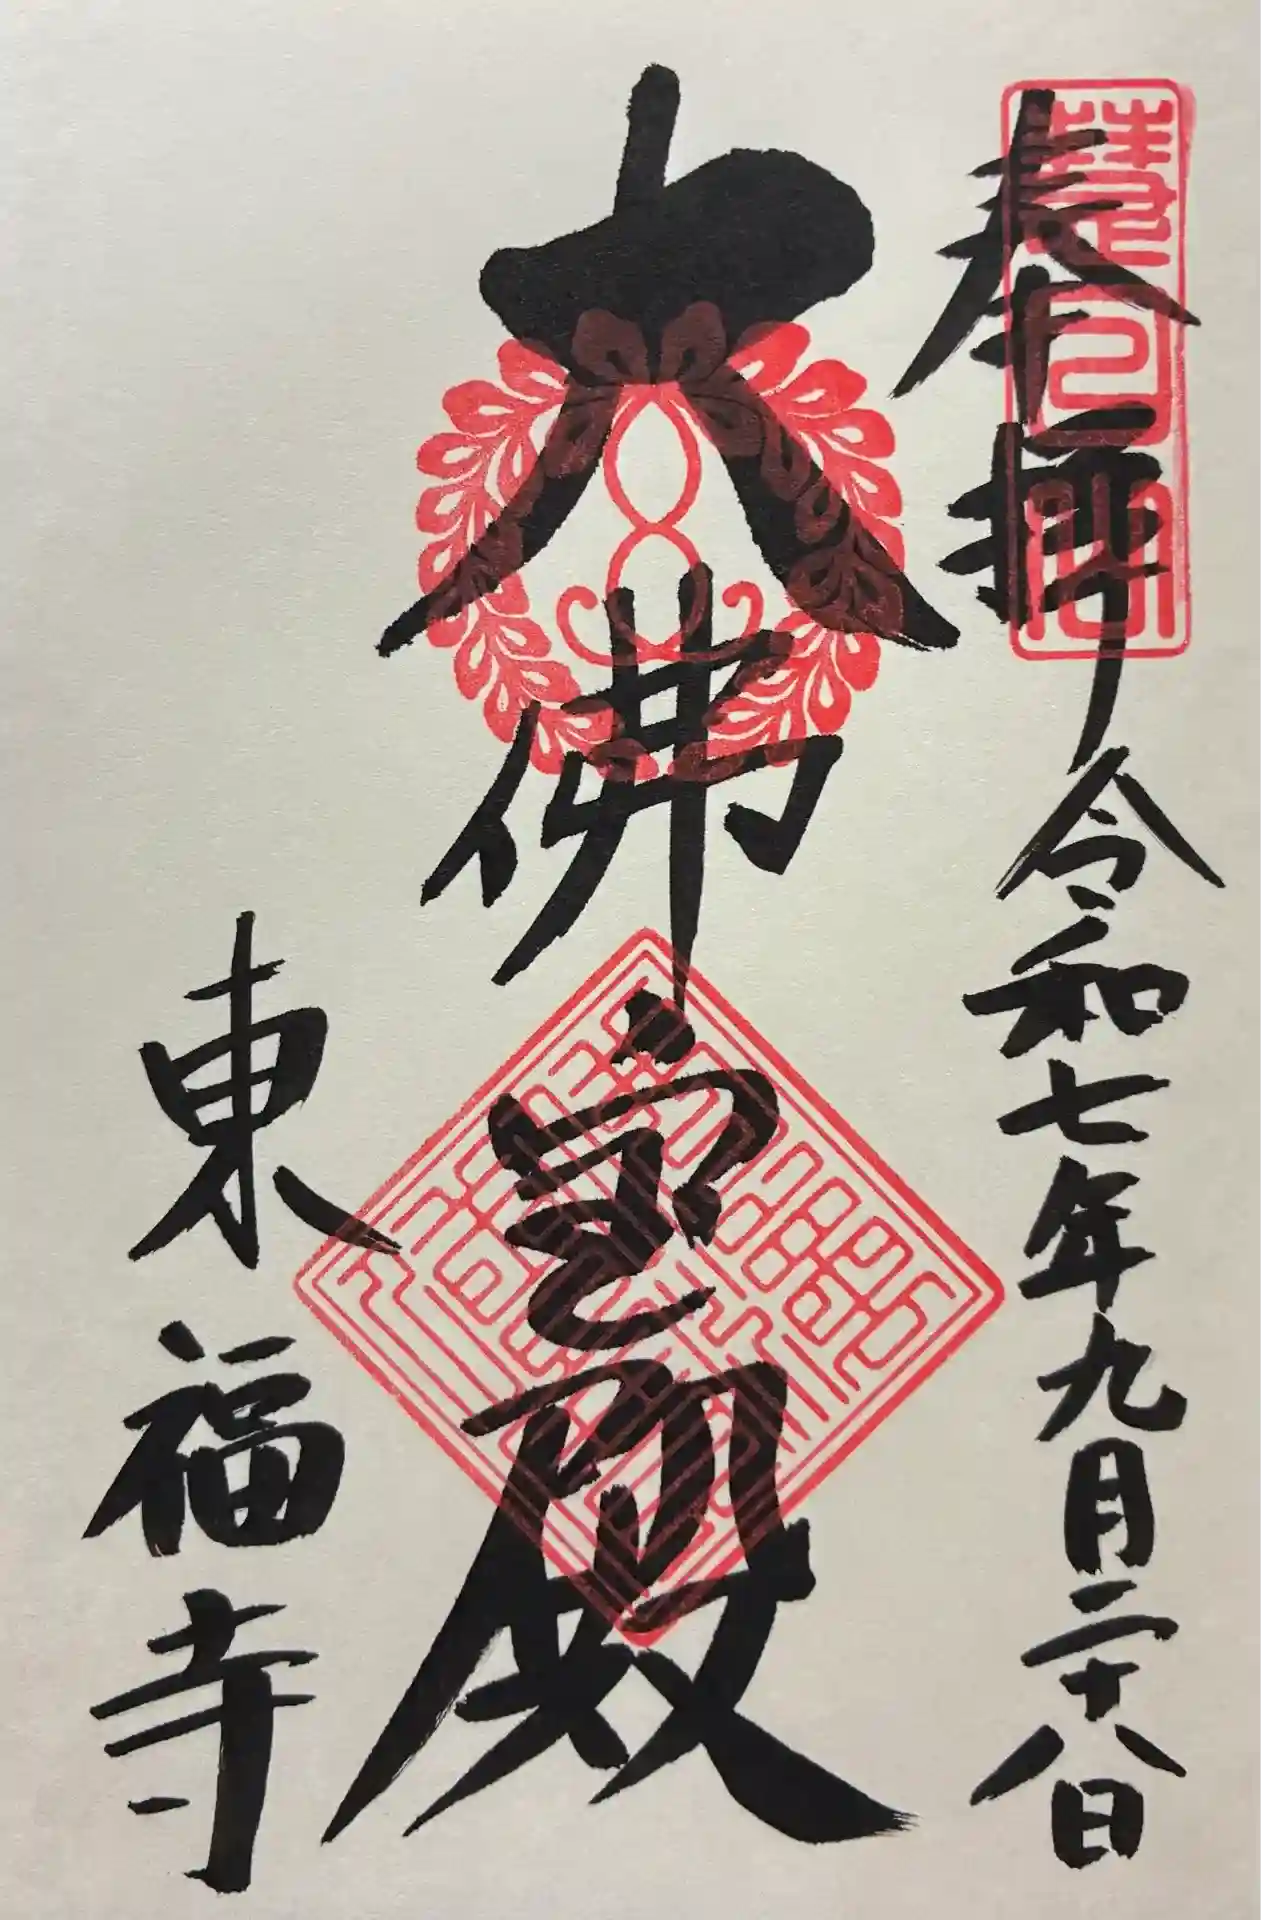 奉拝 令和七年九月二十八日
大佛宝殿
東福寺
慧日山